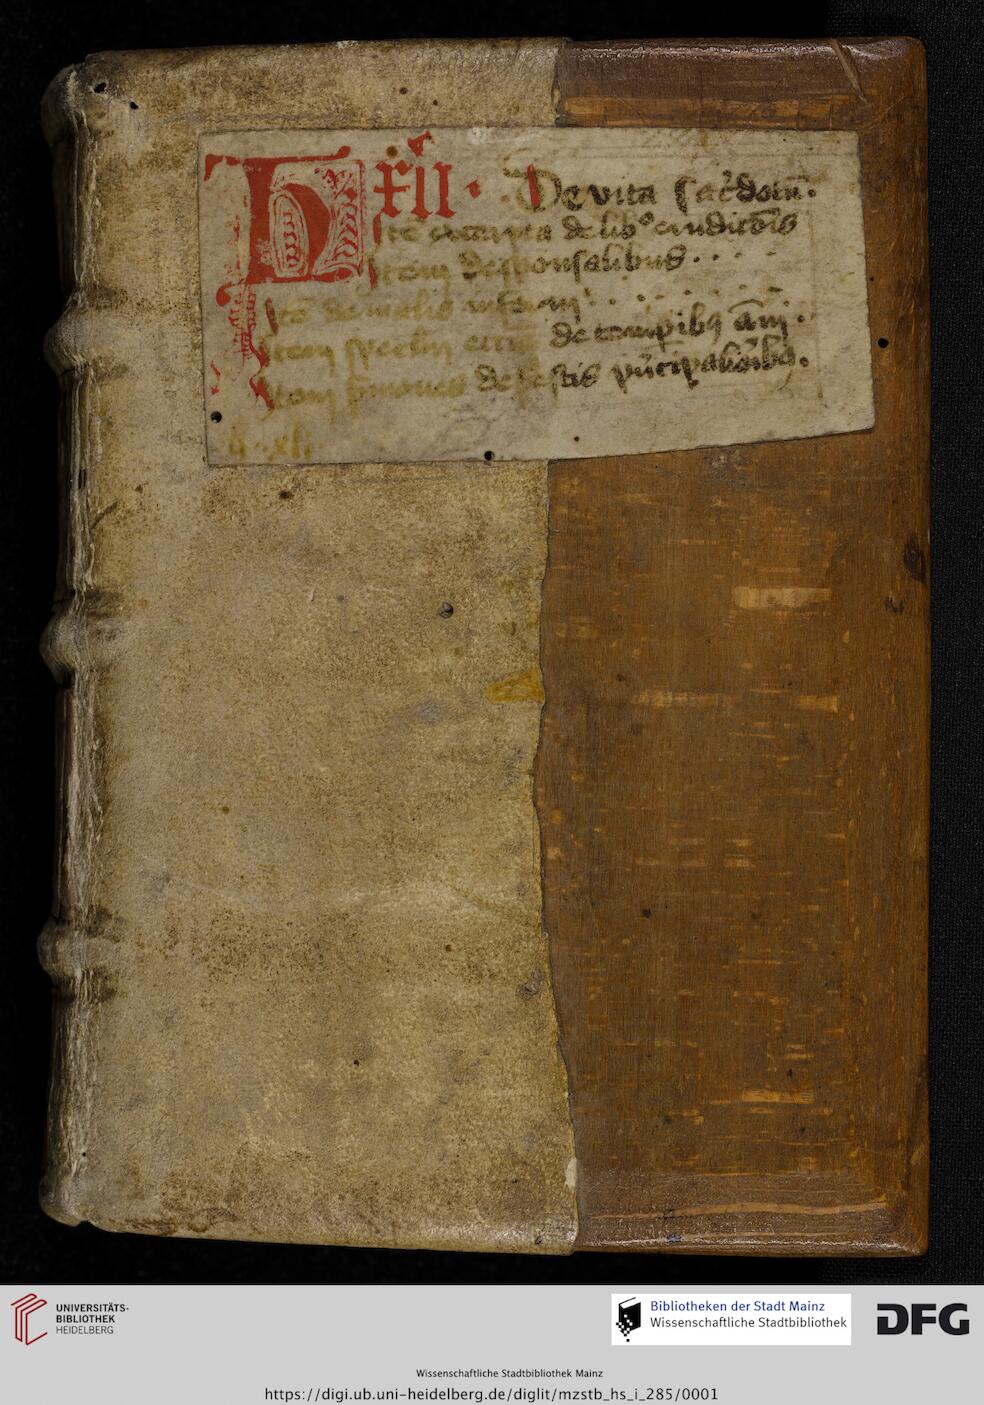 H xii · De vita sac̄dotū·
Itē excerpta de lib° eruditōis
Item de sponsalibus · · · ·
Itē de
Item de tempibꝫ āni·
Item sermones de festis
q · xli
UNIVERSITÄTS-
BIBLIOTHEK
HEIDELBERG
Bibliotheken der Stadt Mainz
Wissenschaftliche Stadtbibliothek
DFG
Wissenschaftliche Stadtbibliothek Mainz
https://digi.ub.uni-heidelberg.de/diglit/mzstb_hs_i_285/0001